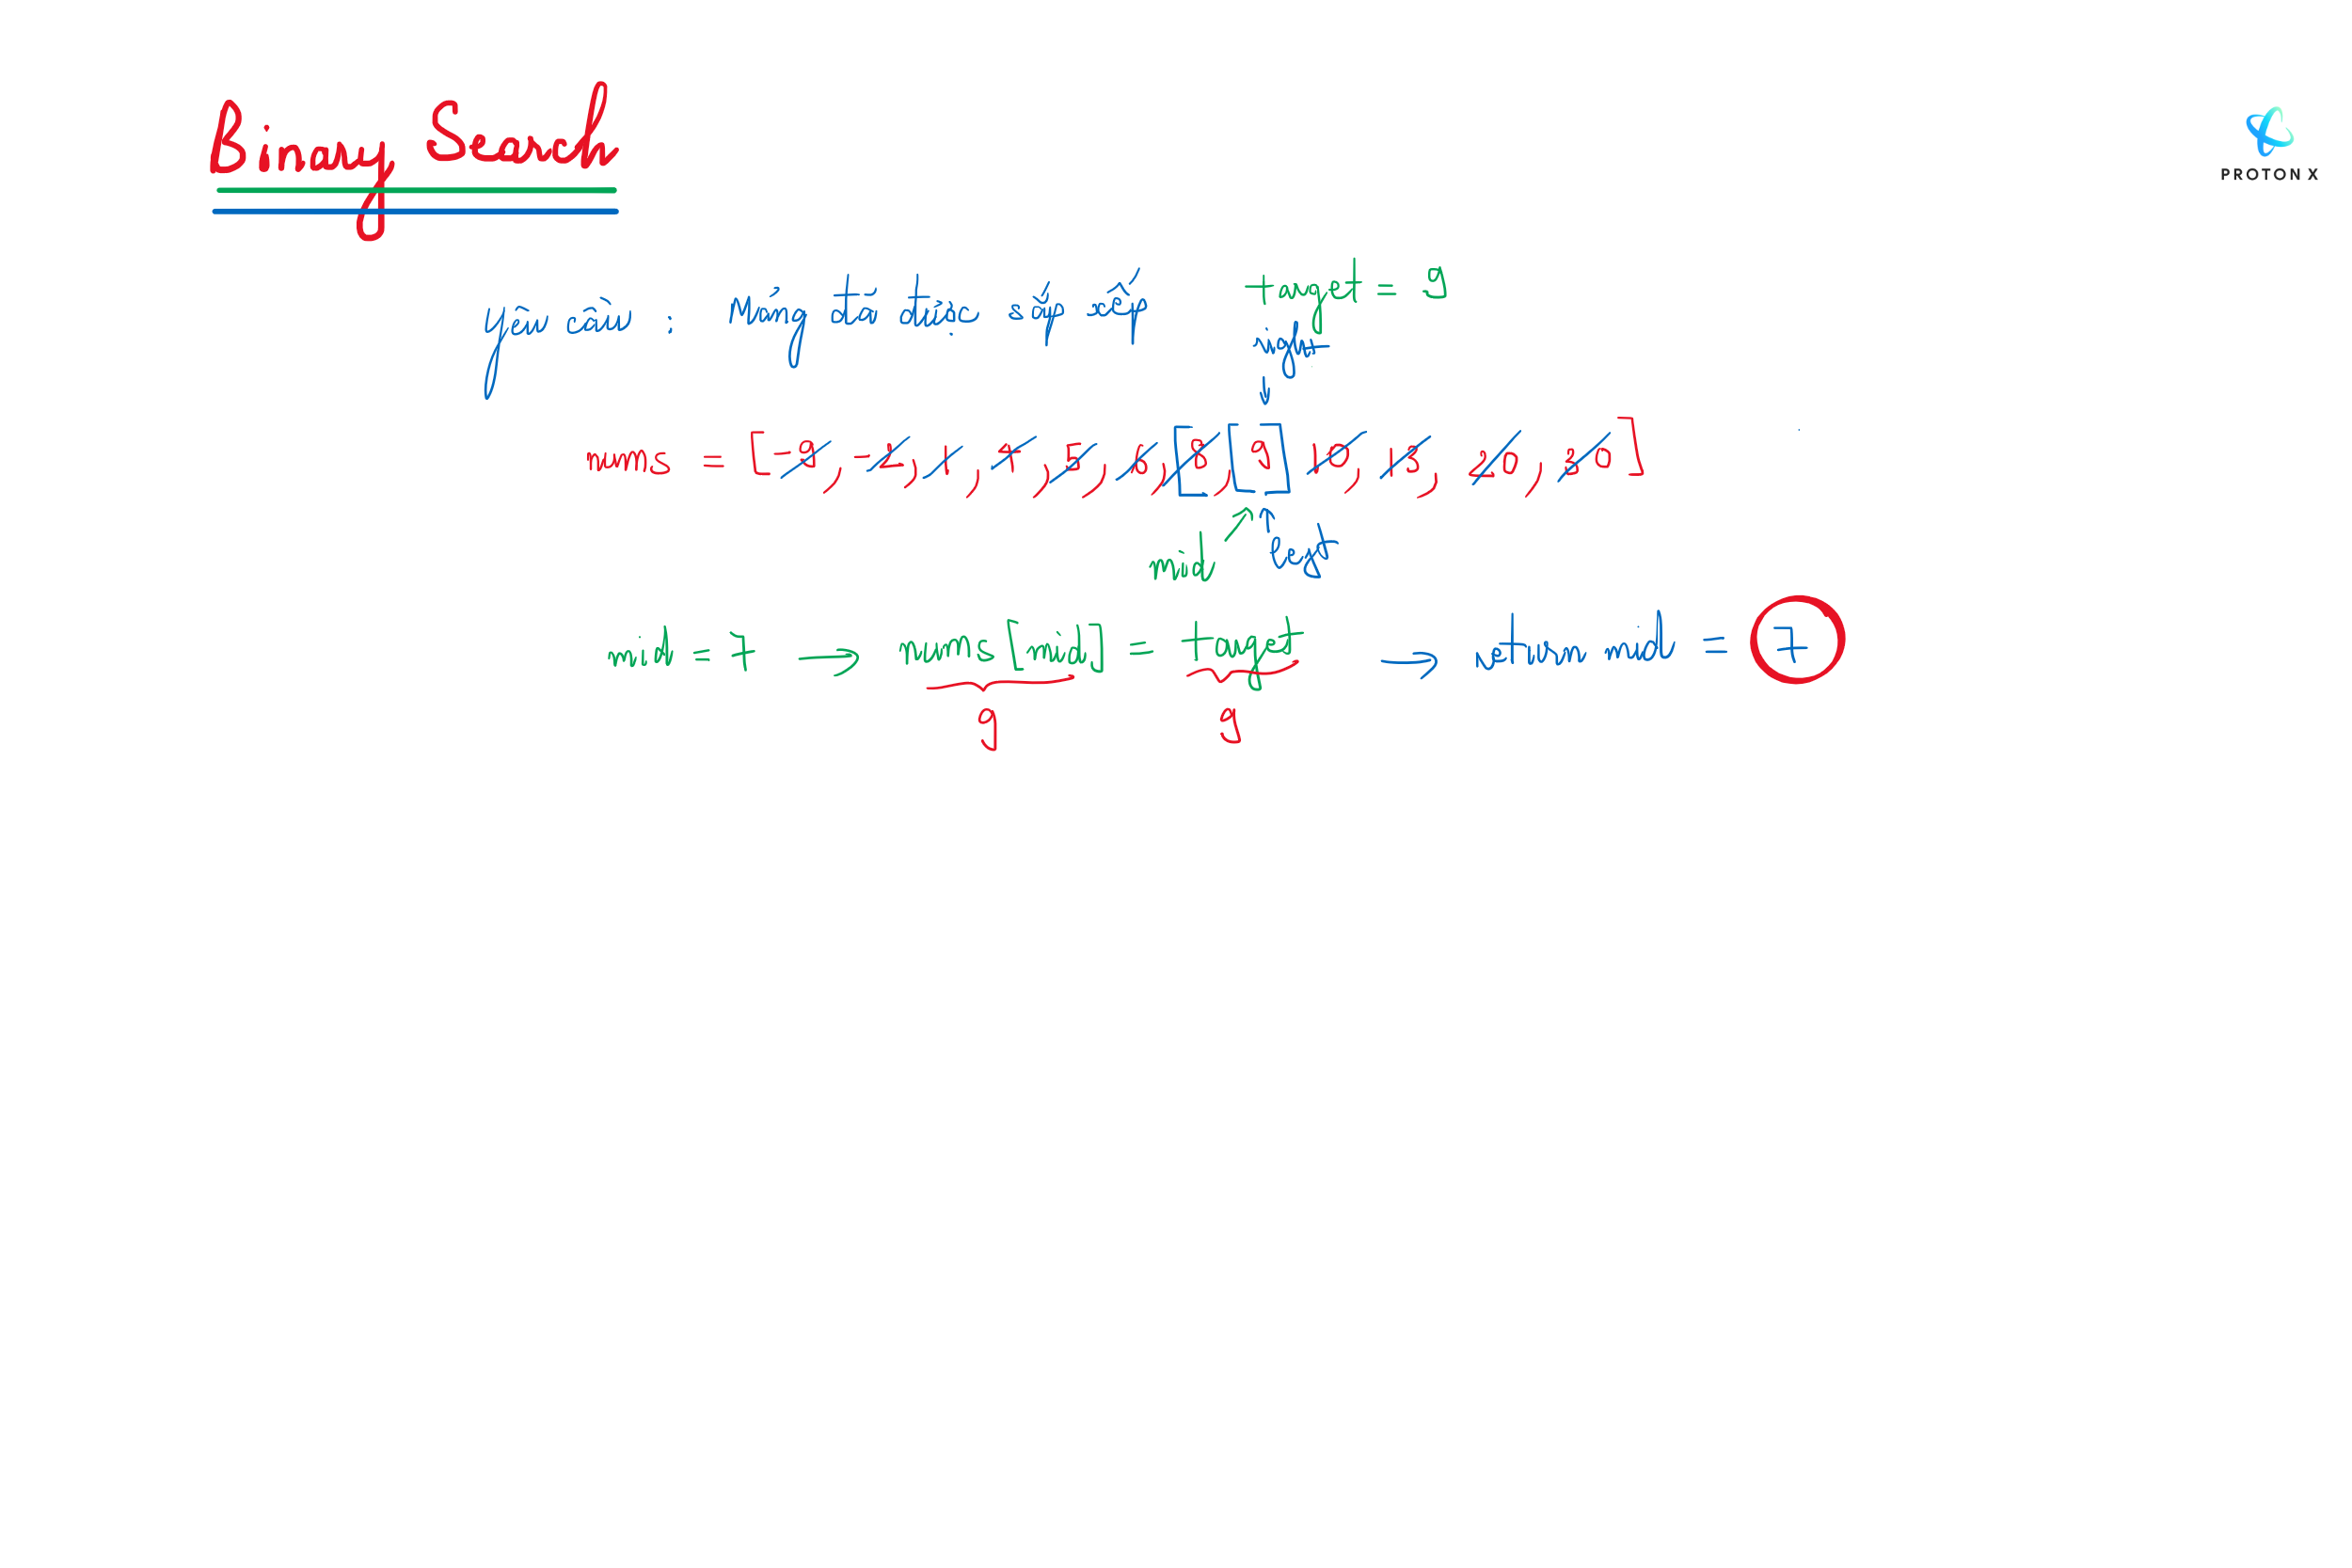 Binary Search
PROTON X
yêu cầu : Mảng đã được sắp xếp target = 9
right
nums = [-9, -2, 1, 4, 5, 6, [8, [9] 10, 13, 20, 30]
mid left
mid = 7 → nums[mid] = target → return mid = 7
9 9